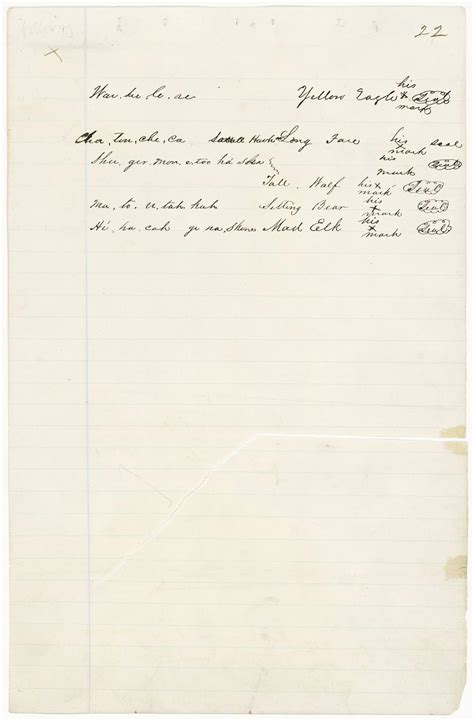 22
x
Wau, ke, le, se Yellow Eagle his x mark Seal
Cha, ton, che, ca Small Hawk Long Fare his mark seal
Shu, ger, mon, e, too, ha, ska his mark Seal
Tall Wolf his x mark Seal
Ma, to, u, tah, kah Sitting Bear his x mark Seal
Hi, ha, cah, ge, na, Skene Mad Elk his x mark Seal